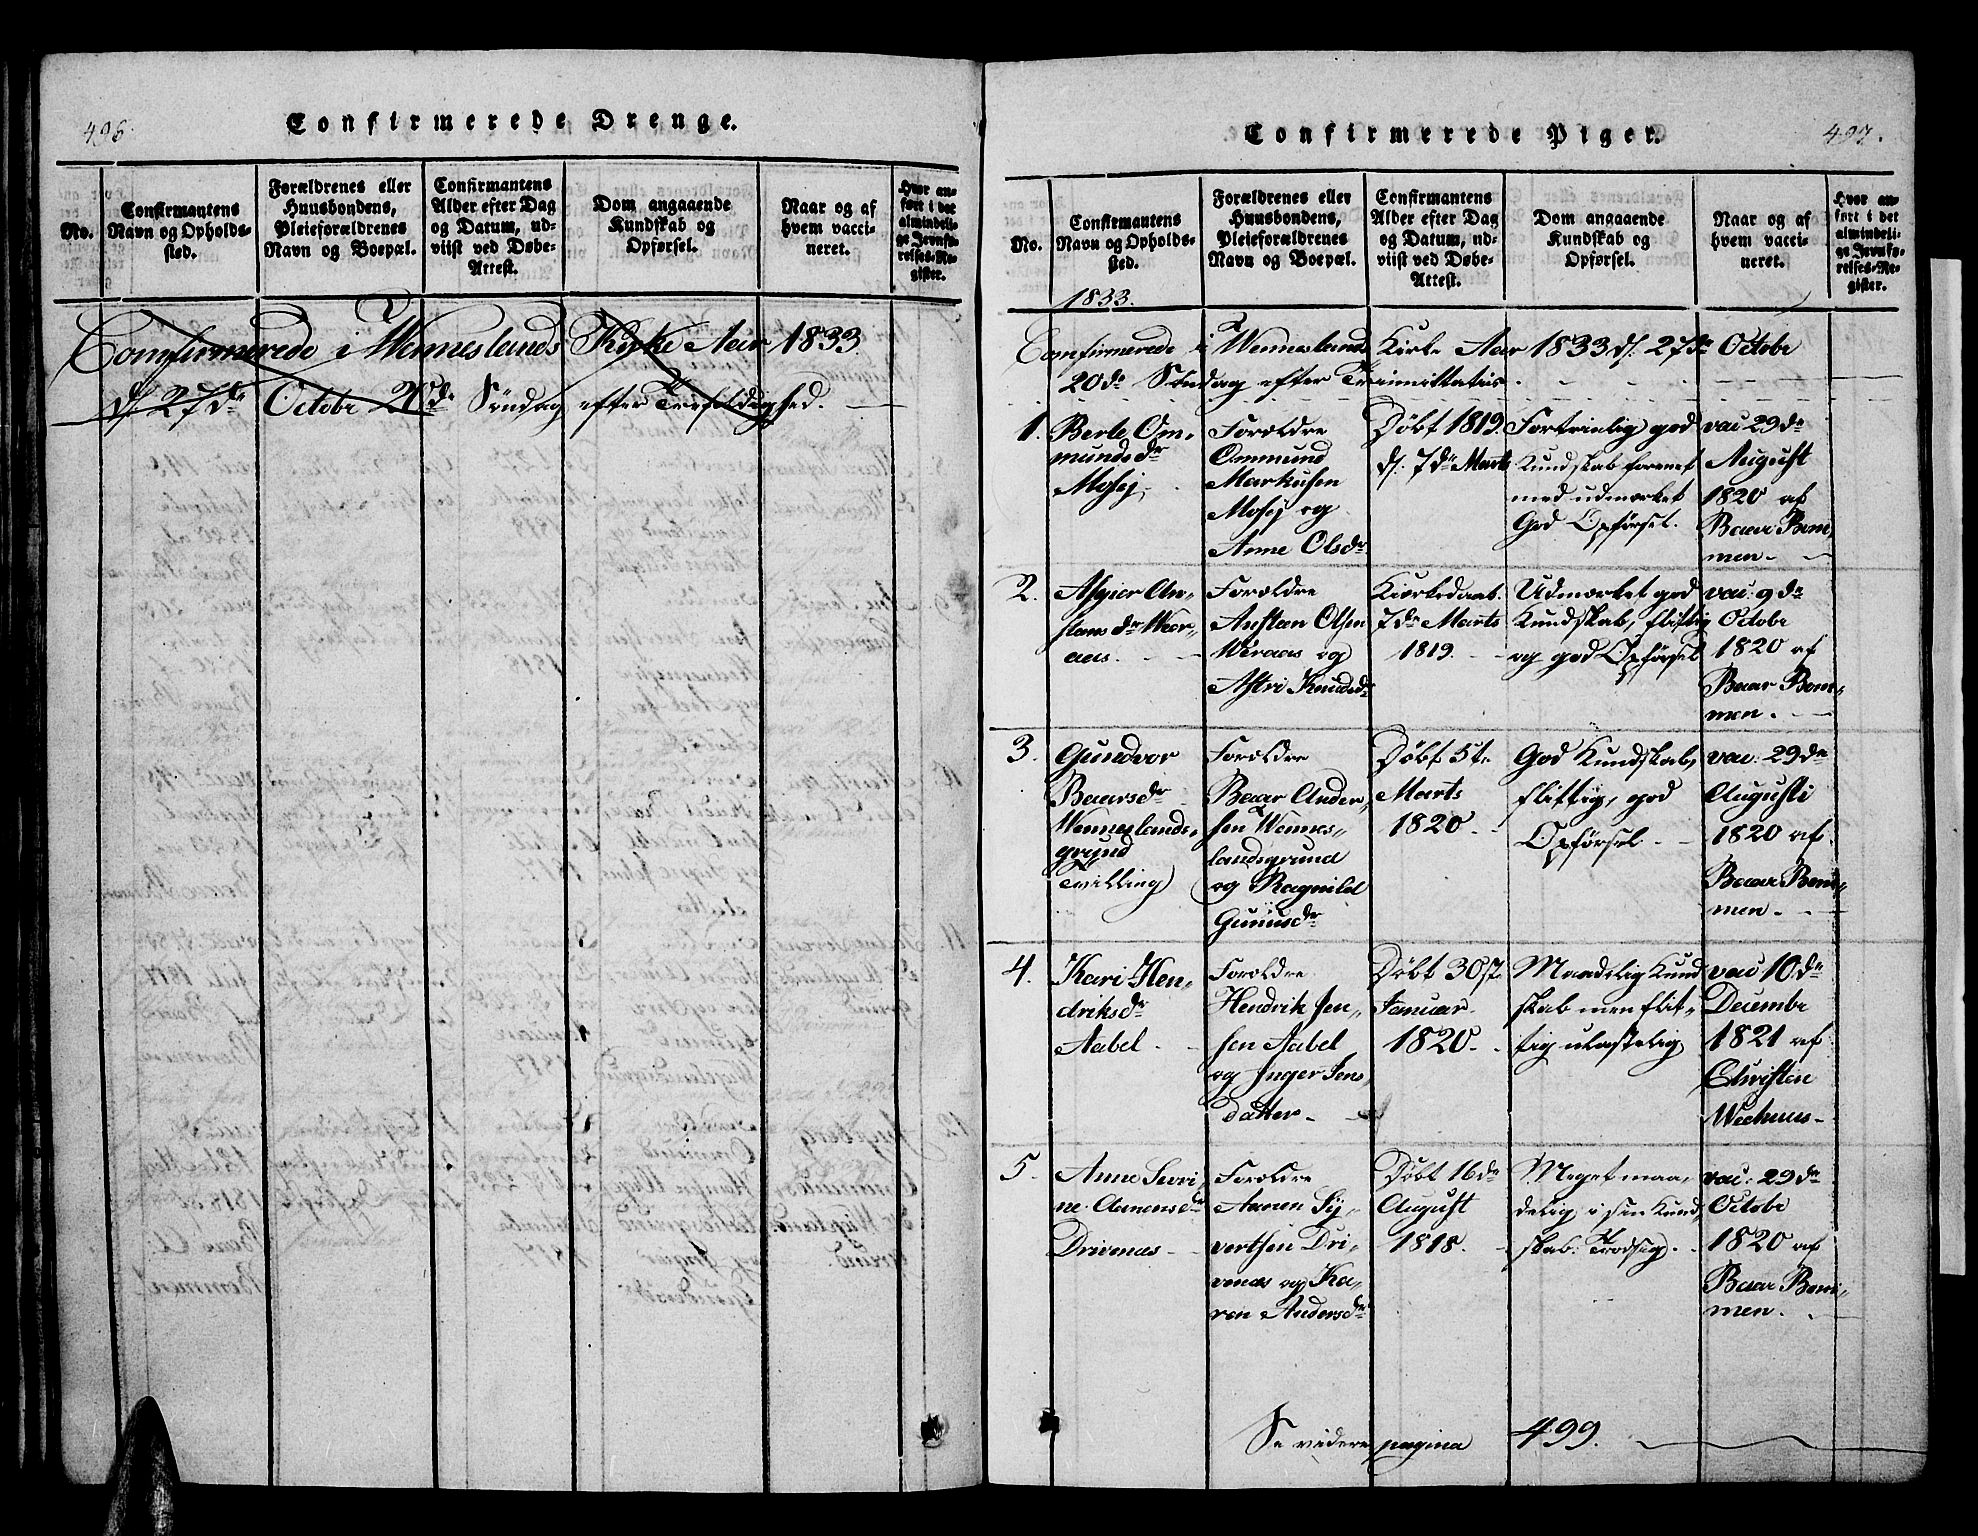 496.
Confirmerede Drenge.
No.
Confirmantens
Navn og Opholds-
sted.
Forældrenes eller
Huusbondens,
Pleieforældrenes
Navn og Boepæl.
Confirmantens
Alder efter Dag
og Datum, ud-
viist ved Døbe-
Attest.
Dom angaaende
Kundskab og
Opførsel.
Naar og af
hvem vacci-
neret.
Hvor an-
ført i det
almindeli-
ge Jevnfø-
relses-Re-
gister.
Comfirmerede i Wenneslands Kirke Aar 1833
d. 27de Octobr 20de Søndag efter Trefoldighed.
Confirmerede Piger.
497.
No.
Confirmantens
Navn og Opholds-
sted.
Forældrenes eller
Huusbondens,
Pleieforældrenes
Navn og Boepæl.
Confirmantens
Alder efter Dag
og Datum, ud-
viist ved Døbe-
Attest.
Dom angaaende
Kundskab og
Opførsel.
Naar og af
hvem vacci-
neret.
Hvor an-
ført i det
almindeli-
ge Jevnfø-
relses-Re-
gister.
1833.
Comfirmerede i Wenneslands Kirke Aar 1833 d. 27de Octobr
20de Søndag efter Trinnittatis.
1.
Berte Om-
mundsdr
Mosej
Foroldre
Ommund
Markusen
Mosej og
Anne Olsdr
Døbt 1819.
d. 7de Marts
Fortrinlig god
Kundskab forenet
med udmorket
God Opførsel.
vac 29de
August
1820 af
Baar Bom-
men.
2.
Asgier An-
stansdr Wer-
aas.
Foroldre
Anstan Olsen
Weraas og
Astri Knudsdr
Kiørkedaab.
7de Marts
1819.
Udmorket god
Kundskab, flittig
og god Opførsel
vac. 9de
Octobr
1820 af
Baar Bom-
men.
3.
Gundvor
Baarsdr
Wenneslands-
grund
Tvilling
Foroldre
Baar Ander-
sen Wennes-
landsgrund
og Ragnild
Gunusdr
Døbt 5te
Marts
1820
God Kundskab,
flittig, god
Opførsel.
vac. 29de
Augusti
1820 af
Baar Bom-
men.
4.
Kari Hen-
driksdr
Aabel.
Foroldre
Hendrik Jen-
sen Aabel
og Inger Jens-
datter.
Døbt 30st
Januar
1820.
Maadelig Kund
skab men flit-
tig ulastelig
vac 10de
Decembr
1821 af
Christen
Weehuus
5.
Anne Sevri-
ne Aanensdr
Drivenæs
Foroldre
Aanen Sy-
vertsen Dri-
venæs og Ka-
ren Andersdr
Døbt 16de
August
1818.
Meget maa-
delig i sin Kund-
skab: Trodsig.
vac. 29de
Octobr
1820 af
Baar Bom-
men.
Se videre pagina 499.